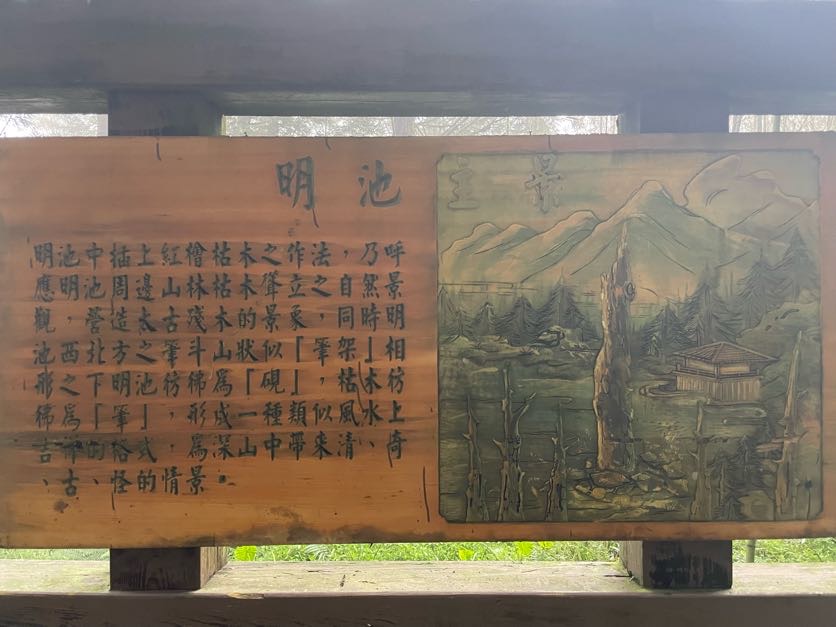 明池主景
明池中插上紅檜枯木之作法，乃呼
應明池周邊山林枯木聳立之自然景
觀，營造太古殘木的景象，同時明
池西北方之筆斗山狀似「筆架」相
形之下明池彷彿為「硯」，枯木彷
彿為「筆」，形成一種類似風水上
吉神的格式，為深山中帶來清、奇
、古、怪的情景。